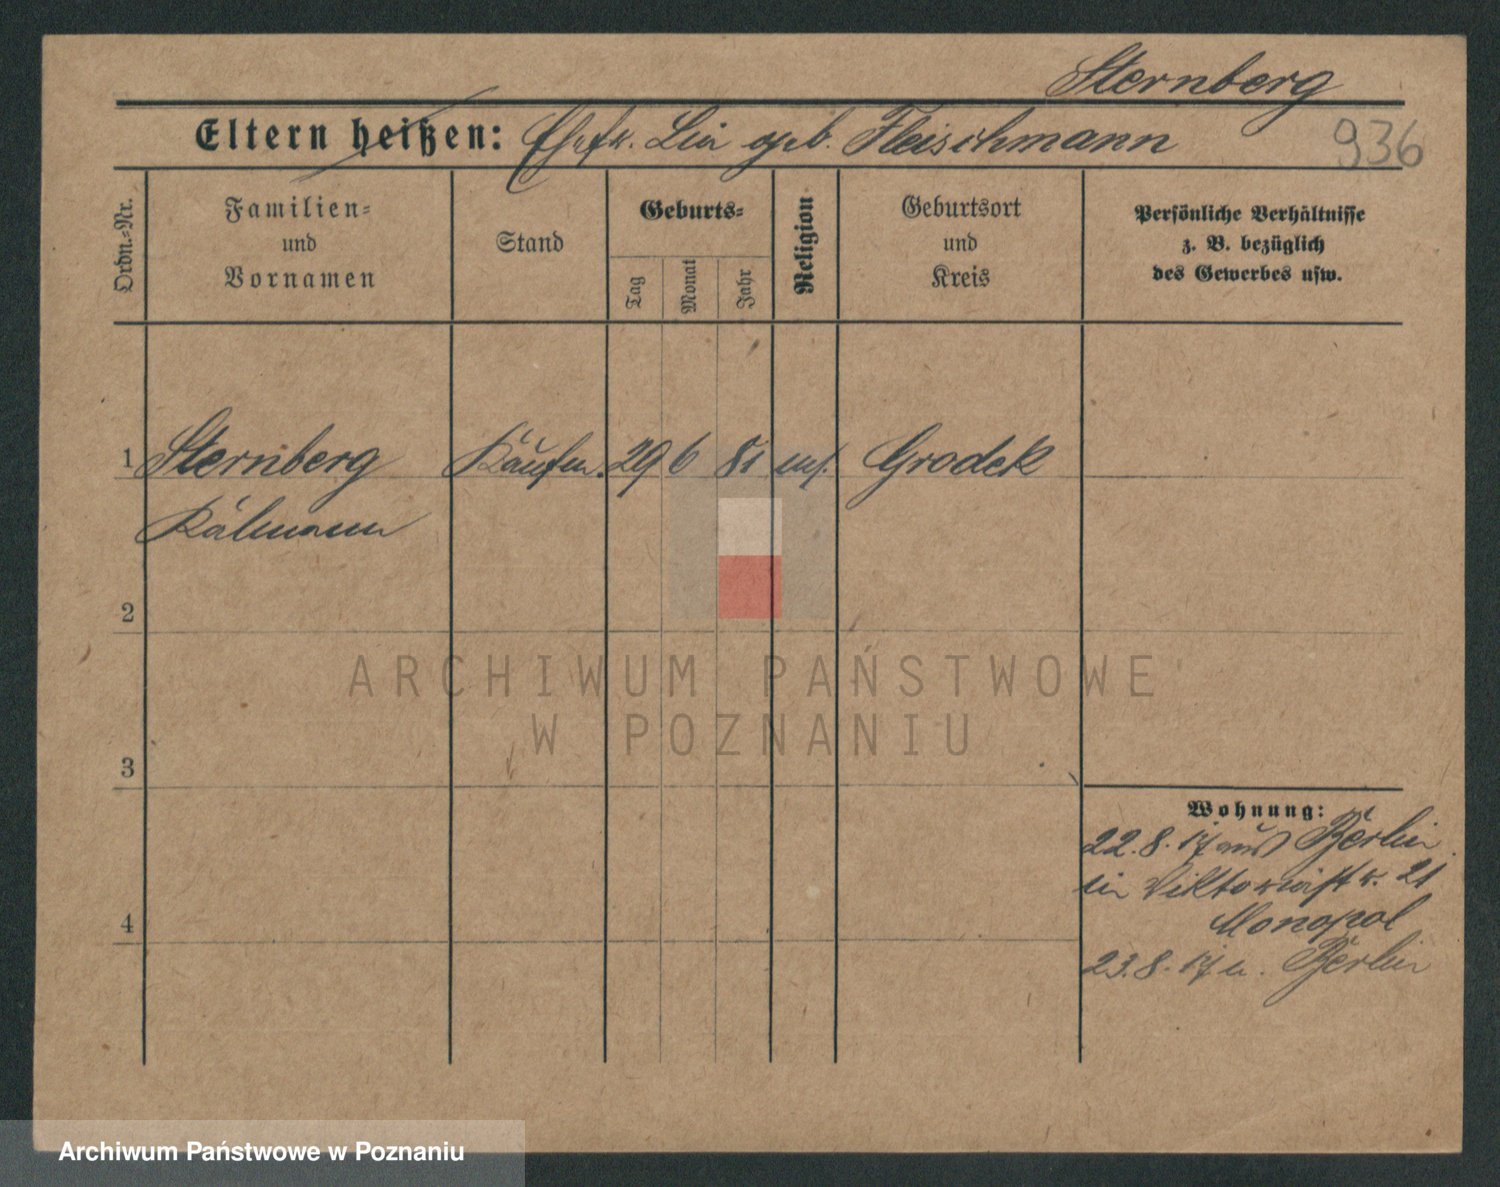 Sternberg
Eltern heißen: Ehefr. Lia geb. Fleischmann
936
Ordn.=Nr.
Familien=
und
Vornamen
Stand
Geburts=
Tag
Monat
Jahr
Religion
Geburtsort
und
Kreis
Persönliche Verhältnisse
z. B. bezüglich
des Gewerbes usw.
1 Sternberg Kaufm. 29 6 81 Grodek
Kálmann
2
3
4
Wohnung:
22.8.17 aus Berlin
in Viktoriastr. 21
Monopol
23.8.17 n. Berlin
ARCHIWUM PAŃSTWOWE
W POZNANIU
Archiwum Państwowe w Poznaniu